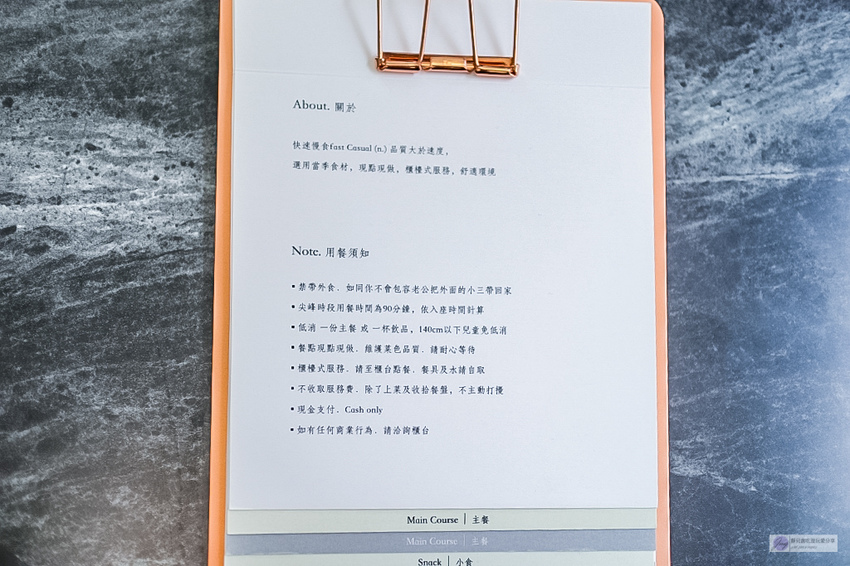 About. 關於
快速慢食fast Casual (n.) 品質大於速度,
選用當季食材, 現點現做, 櫃檯式服務, 舒適環境
Note. 用餐須知
▪ 禁帶外食. 如同你不會包容老公把外面的小三帶回家
▪ 尖峰時段用餐時間為90分鐘, 依入座時間計算
▪ 低消 一份主餐 或 一杯飲品, 140cm以下兒童免低消
▪ 餐點現點現做. 維護菜色品質. 請耐心等待
▪ 櫃檯式服務. 請至櫃台點餐. 餐具及水請自取
▪ 不收取服務費. 除了上菜及收拾餐盤, 不主動打擾
▪ 現金支付. Cash only
▪ 如有任何商業行為. 請洽詢櫃台
Main Course | 主餐
Main Course | 主餐
Snack | 小食